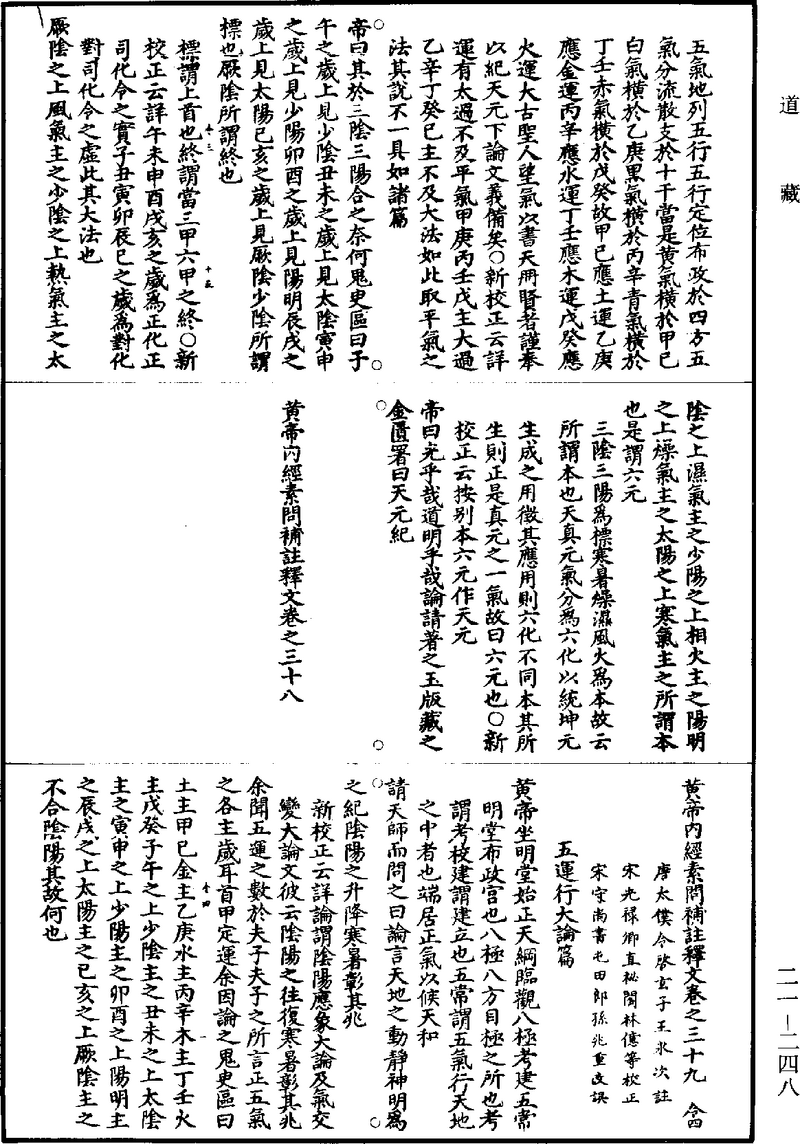 道藏
五氣地列五行五行定位布政於四方五
氣分流散支於十干當是黃氣橫於甲己
白氣橫於乙庚黑氣橫於丙辛青氣橫於
丁壬赤氣橫於戊癸故甲己應土運乙庚
應金運丙辛應水運丁壬應木運戊癸應
火運大古聖人望氣以書天冊賢者謹奉
以紀天元下論文義備矣○新校正云詳
運有太過不及平氣甲庚丙壬戊主太過
乙辛丁癸已主不及大法如此取平氣之
法其說不一具如諸篇
帝曰其於三陰三陽合之奈何鬼臾區曰子
午之歲上見少陰丑未之歲上見太陰寅申
之歲上見少陽卯酉之歲上見陽明辰戌之
歲上見太陽已亥之歲上見厥陰少陰所謂
標也厥陰所謂終也
標謂上首也終謂當三甲六甲之終○新
校正云詳午未申酉戌亥之歲爲正化正
司化令之實子丑寅卯辰巳之歲爲對化
對司化令之虛此其大法也
厥陰之上風氣主之少陰之上熱氣主之太
陰之上濕氣主之少陽之上相火主之陽明
之上燥氣主之太陽之上寒氣主之所謂本
也是謂六元
三陰三陽爲標寒暑燥濕風火爲本故云
所謂本也天真元氣分爲六化以統坤元
生成之用徵其應用則六化不同本其所
生則正是真元之一氣故曰六元也○新
校正云按別本六元作天元
帝曰光乎哉道明乎哉論請著之玉版藏之
金匱署曰天元紀
黃帝內經素問補註釋文卷之三十八
黃帝內經素問補註釋文卷之三十九 令四
唐太僕令啓玄子王氷次註
宋光祿卿直秘閣林億等校正
宋守尚書屯田郎孫兆重改誤
五運行大論篇
黃帝坐明堂始正天綱臨觀八極考建五常
明堂布政宮也八極八方目極之所也考
謂考校建謂建立也五常謂五氣行天地
之中者也端居正氣以候天和
請天師而問之曰論言天地之動靜神明爲
之紀陰陽之升降寒暑彰其兆
新校正云詳論謂陰陽應象大論及氣交
變大論文彼云陰陽之往復寒暑彰其兆
余聞五運之數於夫子夫子之所言正五氣
之各主歲耳首甲定運余因論之鬼臾區曰
土主甲己金主乙庚水主丙辛木主丁壬火
主戊癸子午之上少陰主之丑未之上太陰
主之寅申之上少陽主之卯酉之上陽明主
之辰戌之上太陽主之已亥之上厥陰主之
不合陰陽其故何也
二一-二四八